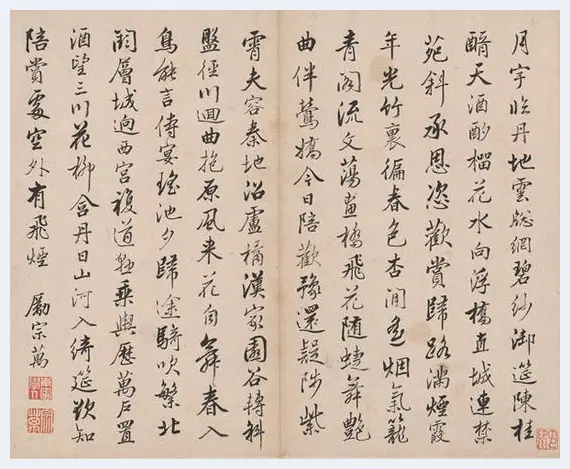 月宇臨丹地雲牕網碧紗御筵陳桂
醑天酒酌榴花水向浮橋直城連禁
苑斜承恩恣歡賞歸路滿煙霞
年光竹裏徧春色杏間遙烟氣籠
青閣流文蕩畫橋飛花隨蝶舞艷
曲伴鶯嬌今日陪歡豫還疑陟紫
霄夫容秦地沼盧橘漢家園谷轉斜
盤徑川迴曲抱原風來花自舞春入
鳥能言侍宴瑤池夕歸途騎吹繁北
闕層城迥西宮複道懸乘輿歷萬戶置
酒望三川花柳含丹日山河入綺筵欲知
陪賞處空外有飛煙 勵宗萬